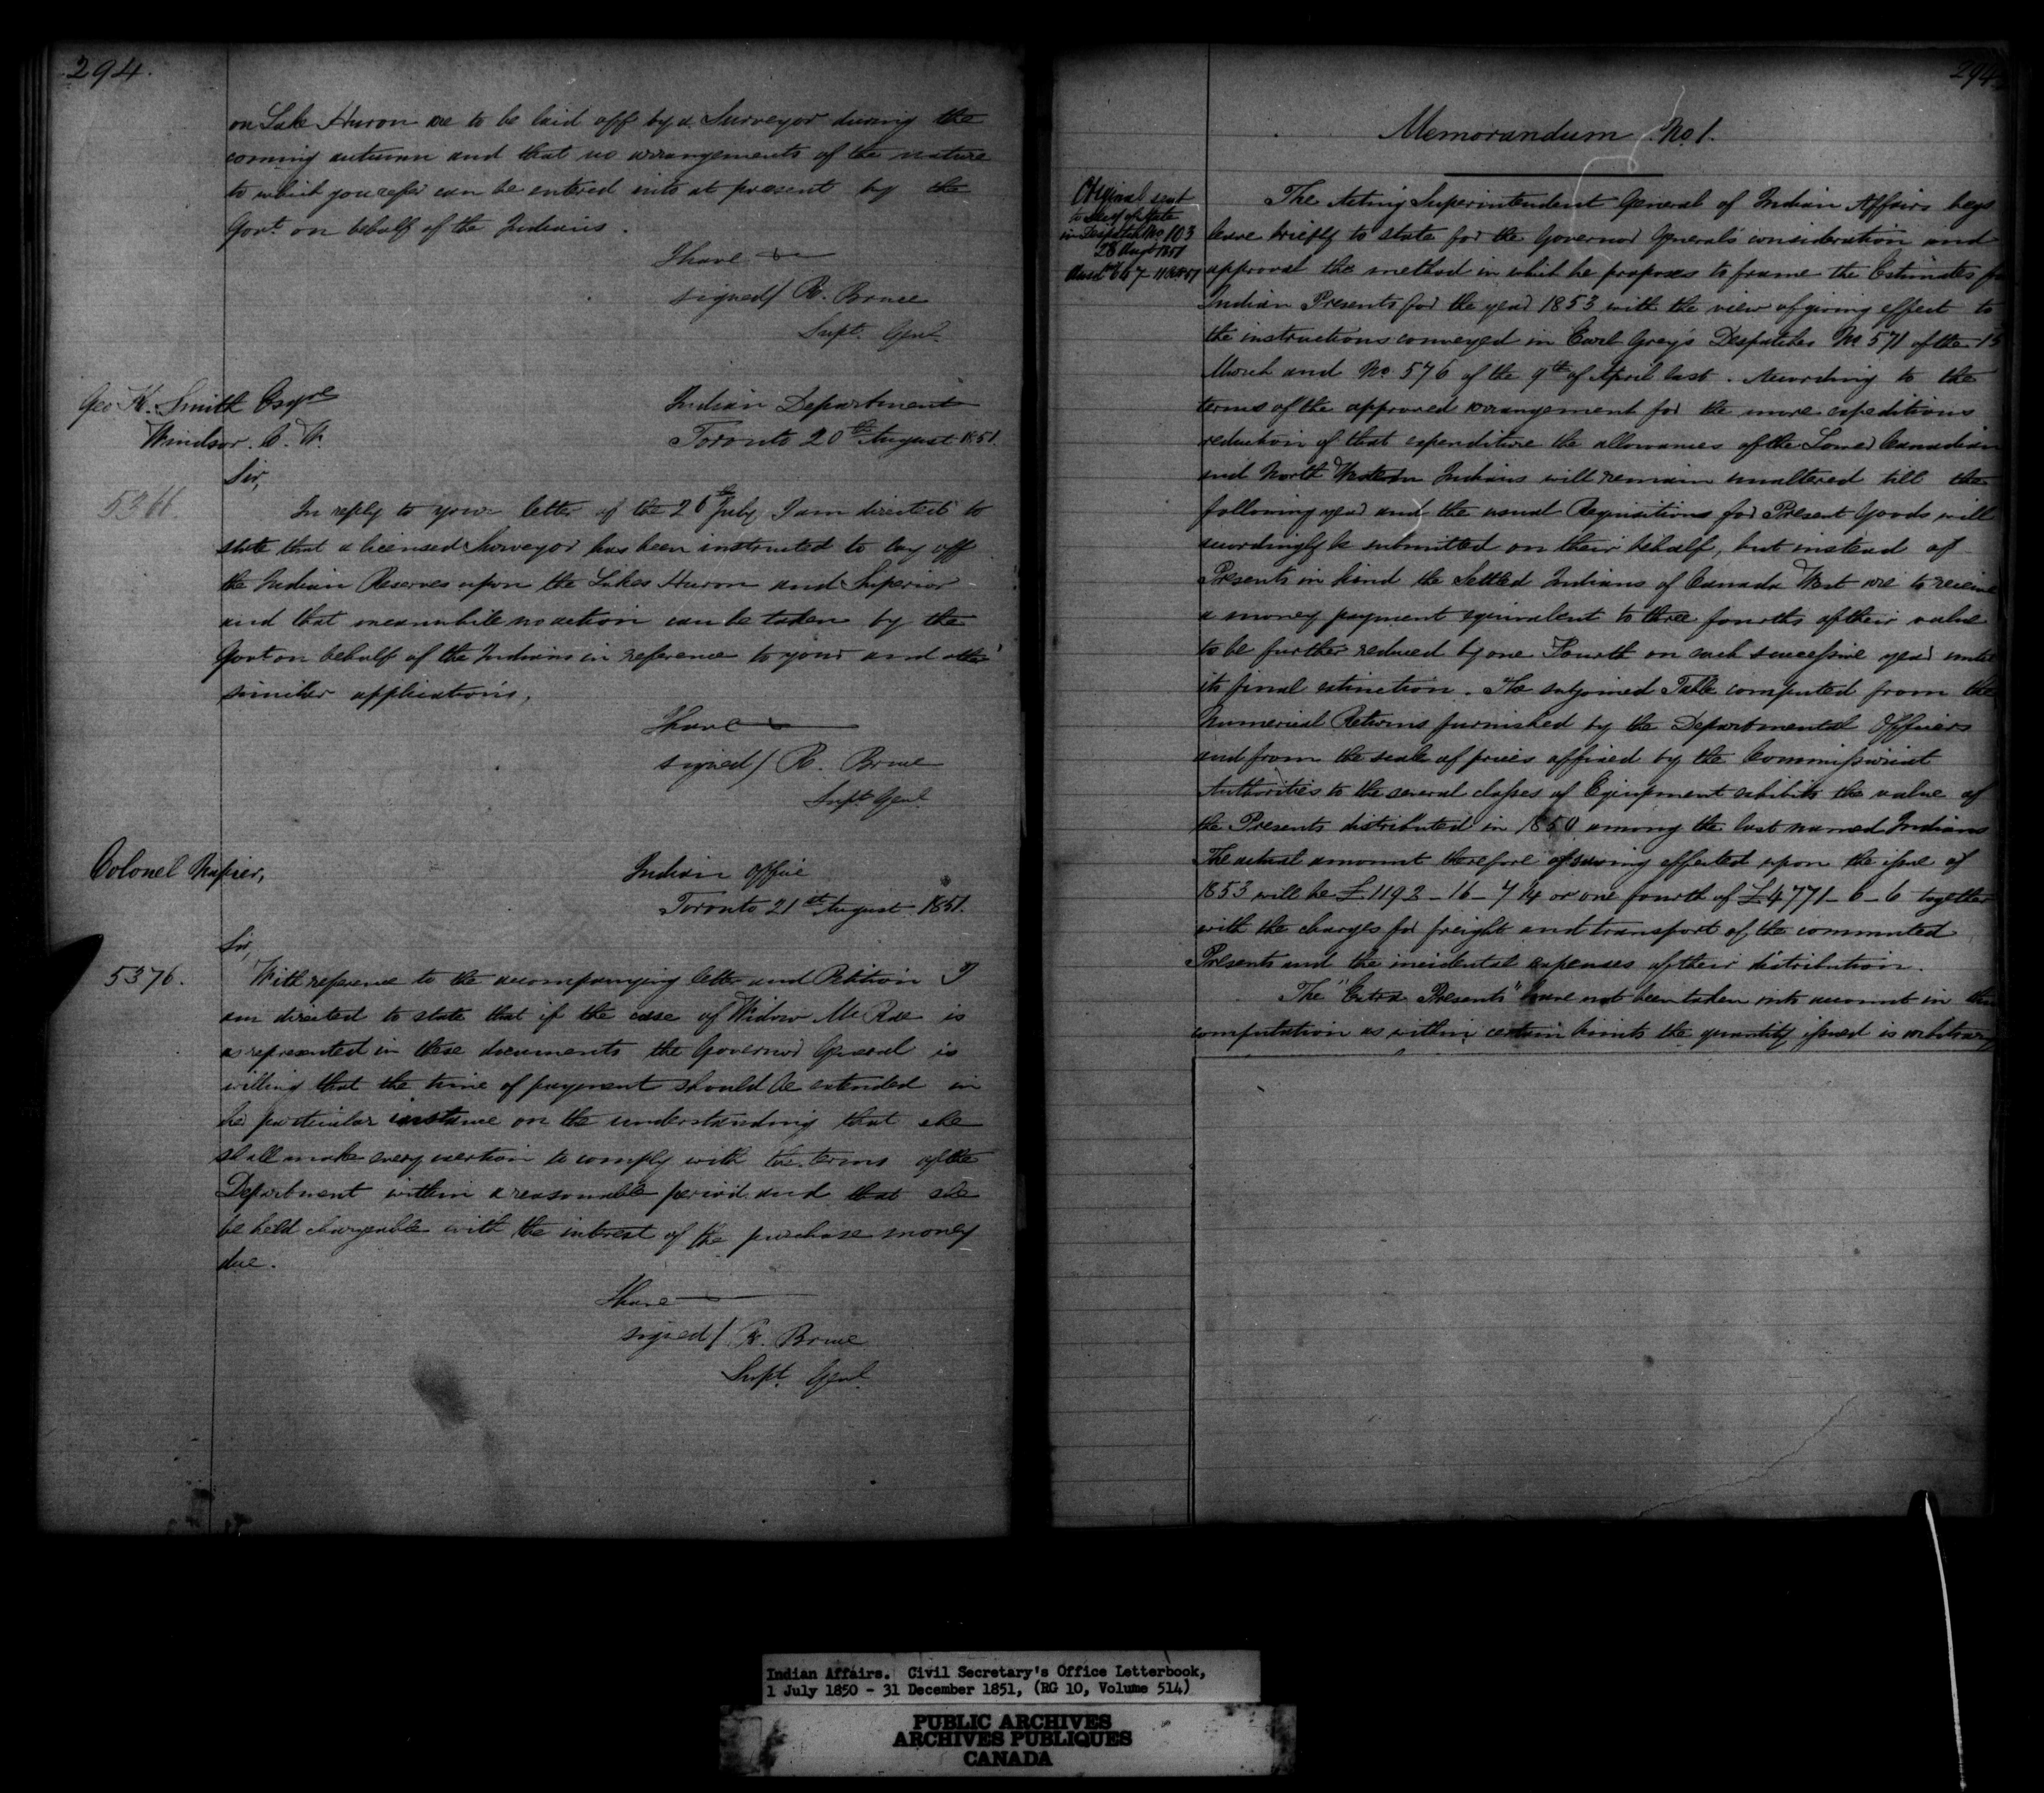 294.
on Lake Huron are to be laid off by a Surveyor during the
coming autumn and that no arrangements of the nature
to which you refer can be entered into at present by the
Govt. on behalf of the Indians.
I have
signed/ R. Bruce
Supt. Genl.
Geo K. Smith Esqre
Windsor. C. W.
Indian Department
Toronto 20th August 1851.
Sir,
5366.
In reply to your letter of the 26th July I am directed to
state that a licensed Surveyor has been instructed to lay off
the Indian Reserves upon the Lakes Huron and Superior
and that meanwhile no action can be taken by the
Govt on behalf of the Indians in reference to your and other
similar applications.
I have
signed/ R. Bruce
Supt Genl.
Colonel Napier,
Indian Office
Toronto 21st August 1851.
Sir,
5376.
With reference to the accompanying letter and Petition I
am directed to state that if the case of Widow McRae is
as represented in these documents the Governor General is
willing that the time of payment should be extended in
her particular instance on the understanding that she
shall make every exertion to comply with the terms of the
Department within a reasonable period and that she
be held chargeable with the interest of the purchase money
due.
I have
signed/ R. Bruce
Supt. Genl.
294
Memorandum No. 1.
Original sent
to Secy of State
in Despatch No 103
28 Augt 1851
The Acting Superintendent General of Indian Affairs begs
leave briefly to state for the Governor General's consideration and
approval the method in which he proposes to frame the Estimates for
Indian Presents for the year 1853 with the view of giving effect to
the instructions conveyed in Earl Grey's Despatches No. 571 of the 15
March and No. 576 of the 9th of April last. According to the
terms of the approved arrangement for the more expeditious
reduction of that expenditure the allowances of the Lower Canadian
and North Western Indians will remain unaltered till the
following year and the usual Requisitions for Present Goods will
accordingly be submitted on their behalf, but instead of
Presents in kind the Settled Indians of Canada West are to receive
a money payment equivalent to three fourths of their value
to be further reduced by one Fourth on each successive year until
its final extinction. The subjoined Table computed from the
Numerical Returns furnished by the Departmental Officers
and from the scale of prices affixed by the Commissariat
Authorities to the several classes of Equipment exhibits the value of
the Presents distributed in 1850 among the last named Indians
The actual amount therefore of saving effected upon the issue of
1853 will be £1192-16-7 1/4 or one fourth of £4771-6-6 together
with the charges for freight and transport of the commuted
Presents and the incidental expenses of their distribution.
The "Extra Presents" have not been taken into account in this
computation as within certain limits the quantity issued is arbitrary
Indian Affairs. Civil Secretary's Office Letterbook,
1 July 1850 - 31 December 1851, (RG 10, Volume 514)
PUBLIC ARCHIVES
ARCHIVES PUBLIQUES
CANADA